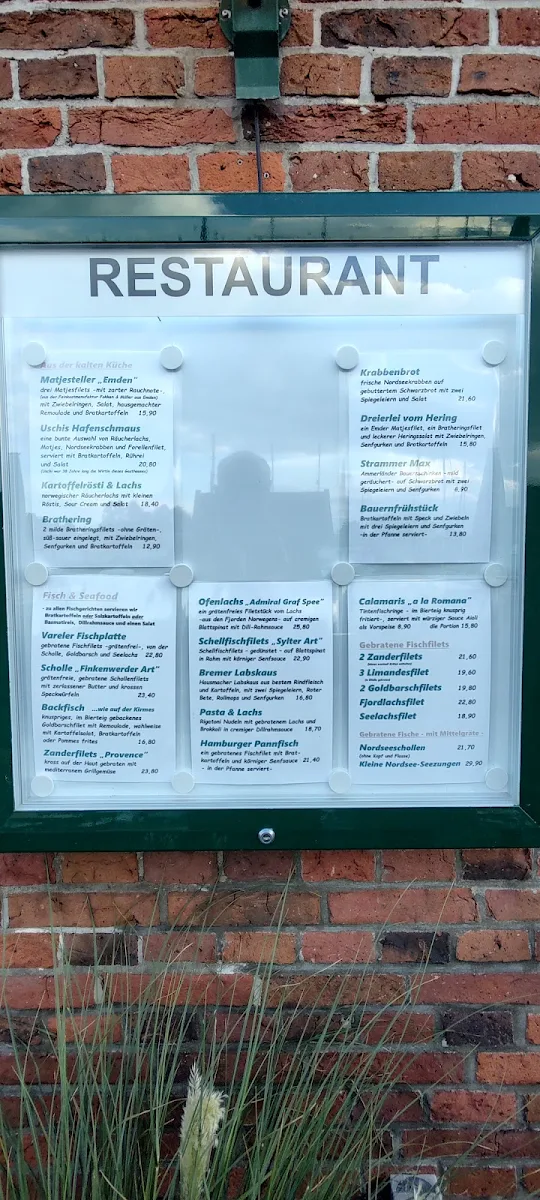 RESTAURANT
Aus der kalten Küche
Matjesteller „Emden"
drei Matjesfilets -mit zarter Rauchnote-,
mit Zwiebelringen, Salat, hausgemachter
Remoulade und Bratkartoffeln 15,90
Uschis Hafenschmaus
eine bunte Auswahl von Räucherlachs,
Matjes, Nordseekrabben und Forellenfilet,
serviert mit Bratkartoffeln, Rührei
und Salat 20,80
Kartoffelrösti & Lachs
norwegischer Räucherlachs mit kleinen
Röstis, Sour Cream und Salat 18,40
Brathering
2 milde Bratheringsfilets -ohne Gräten-,
süß-sauer eingelegt, mit Zwiebelringen,
Senfgurken und Bratkartoffeln 12,90
Krabbenbrot
frische Nordseekrabben auf
gebuttertem Schwarzbrot mit zwei
Spiegeleiern und Salat 21,60
Dreierlei vom Hering
ein Emder Matjesfilet, ein Bratheringsfilet
und leckerer Heringssalat mit Zwiebelringen,
Senfgurken und Bratkartoffeln 15,80
Strammer Max
Ammerländer Bauernschinken -mild
geräuchert- auf Schwarzbrot mit zwei
Spiegeleiern und Senfgurken
Bauernfrühstück
Bratkartoffeln mit Speck und Zwiebeln
mit drei Spiegeleiern und Senfgurken
-in der Pfanne serviert- 13,80
Fisch & Seafood
- zu allen Fischgerichten servieren wir
Bratkartoffeln oder Salzkartoffeln oder
Basmatireis, Dillrahmsauce und einen Salat
Vareler Fischplatte
gebratene Fischfilets -grätenfrei-, von der
Scholle, Goldbarsch und Seelachs 22,80
Scholle „Finkenwerder Art"
grätenfreie, gebratene Schollenfilets
mit zerlassener Butter und krossen
Speckwürfeln 23,40
Backfisch ...wie auf der Kirmes
knuspriges, im Bierteig gebackenes
Goldbarschfilet mit Remoulade, wahlweise
mit Kartoffelsalat, Bratkartoffeln
oder Pommes frites 16,80
Zanderfilets „Provence"
kross auf der Haut gebraten mit
mediterranem Grillgemüse 23,80
Ofenlachs „Admiral Graf Spee"
ein grätenfreies Filetstück vom Lachs
-aus den Fjorden Norwegens- auf cremigen
Blattspinat mit Dill-Rahmsauce 25,80
Schellfischfilets „Sylter Art"
Schellfischfilets - gedünstet - auf Blattspinat
in Rahm mit körniger Senfsauce 22,90
Bremer Labskaus
Hausmacher Labskaus aus bestem Rindfleisch
und Kartoffeln, mit zwei Spiegeleiern, Roter
Bete, Rollmops und Senfgurken 16,80
Pasta & Lachs
Rigatoni Nudeln mit gebratenem Lachs und
Brokkoli in cremiger Dillrahmsauce 18,70
Hamburger Pannfisch
ein gebratenes Fischfilet mit Brat-
kartoffeln und körniger Senfsauce 21,40
- in der Pfanne serviert-
Calamaris „a la Romana"
Tintenfischringe - im Bierteig knusprig
fritiert-, serviert mit würziger Sauce Aioli
als Vorspeise 8,90 die Portion 15,80
Gebratene Fischfilets
2 Zanderfilets 21,60
3 Limandesfilet 19,60
2 Goldbarschfilets 19,80
Fjordlachsfilet 22,80
Seelachsfilet 18,90
Gebratene Fische - mit Mittelgräte -
Nordseeschollen 21,70
(ohne Kopf und Flosse)
Kleine Nordsee-Seezungen 29,90